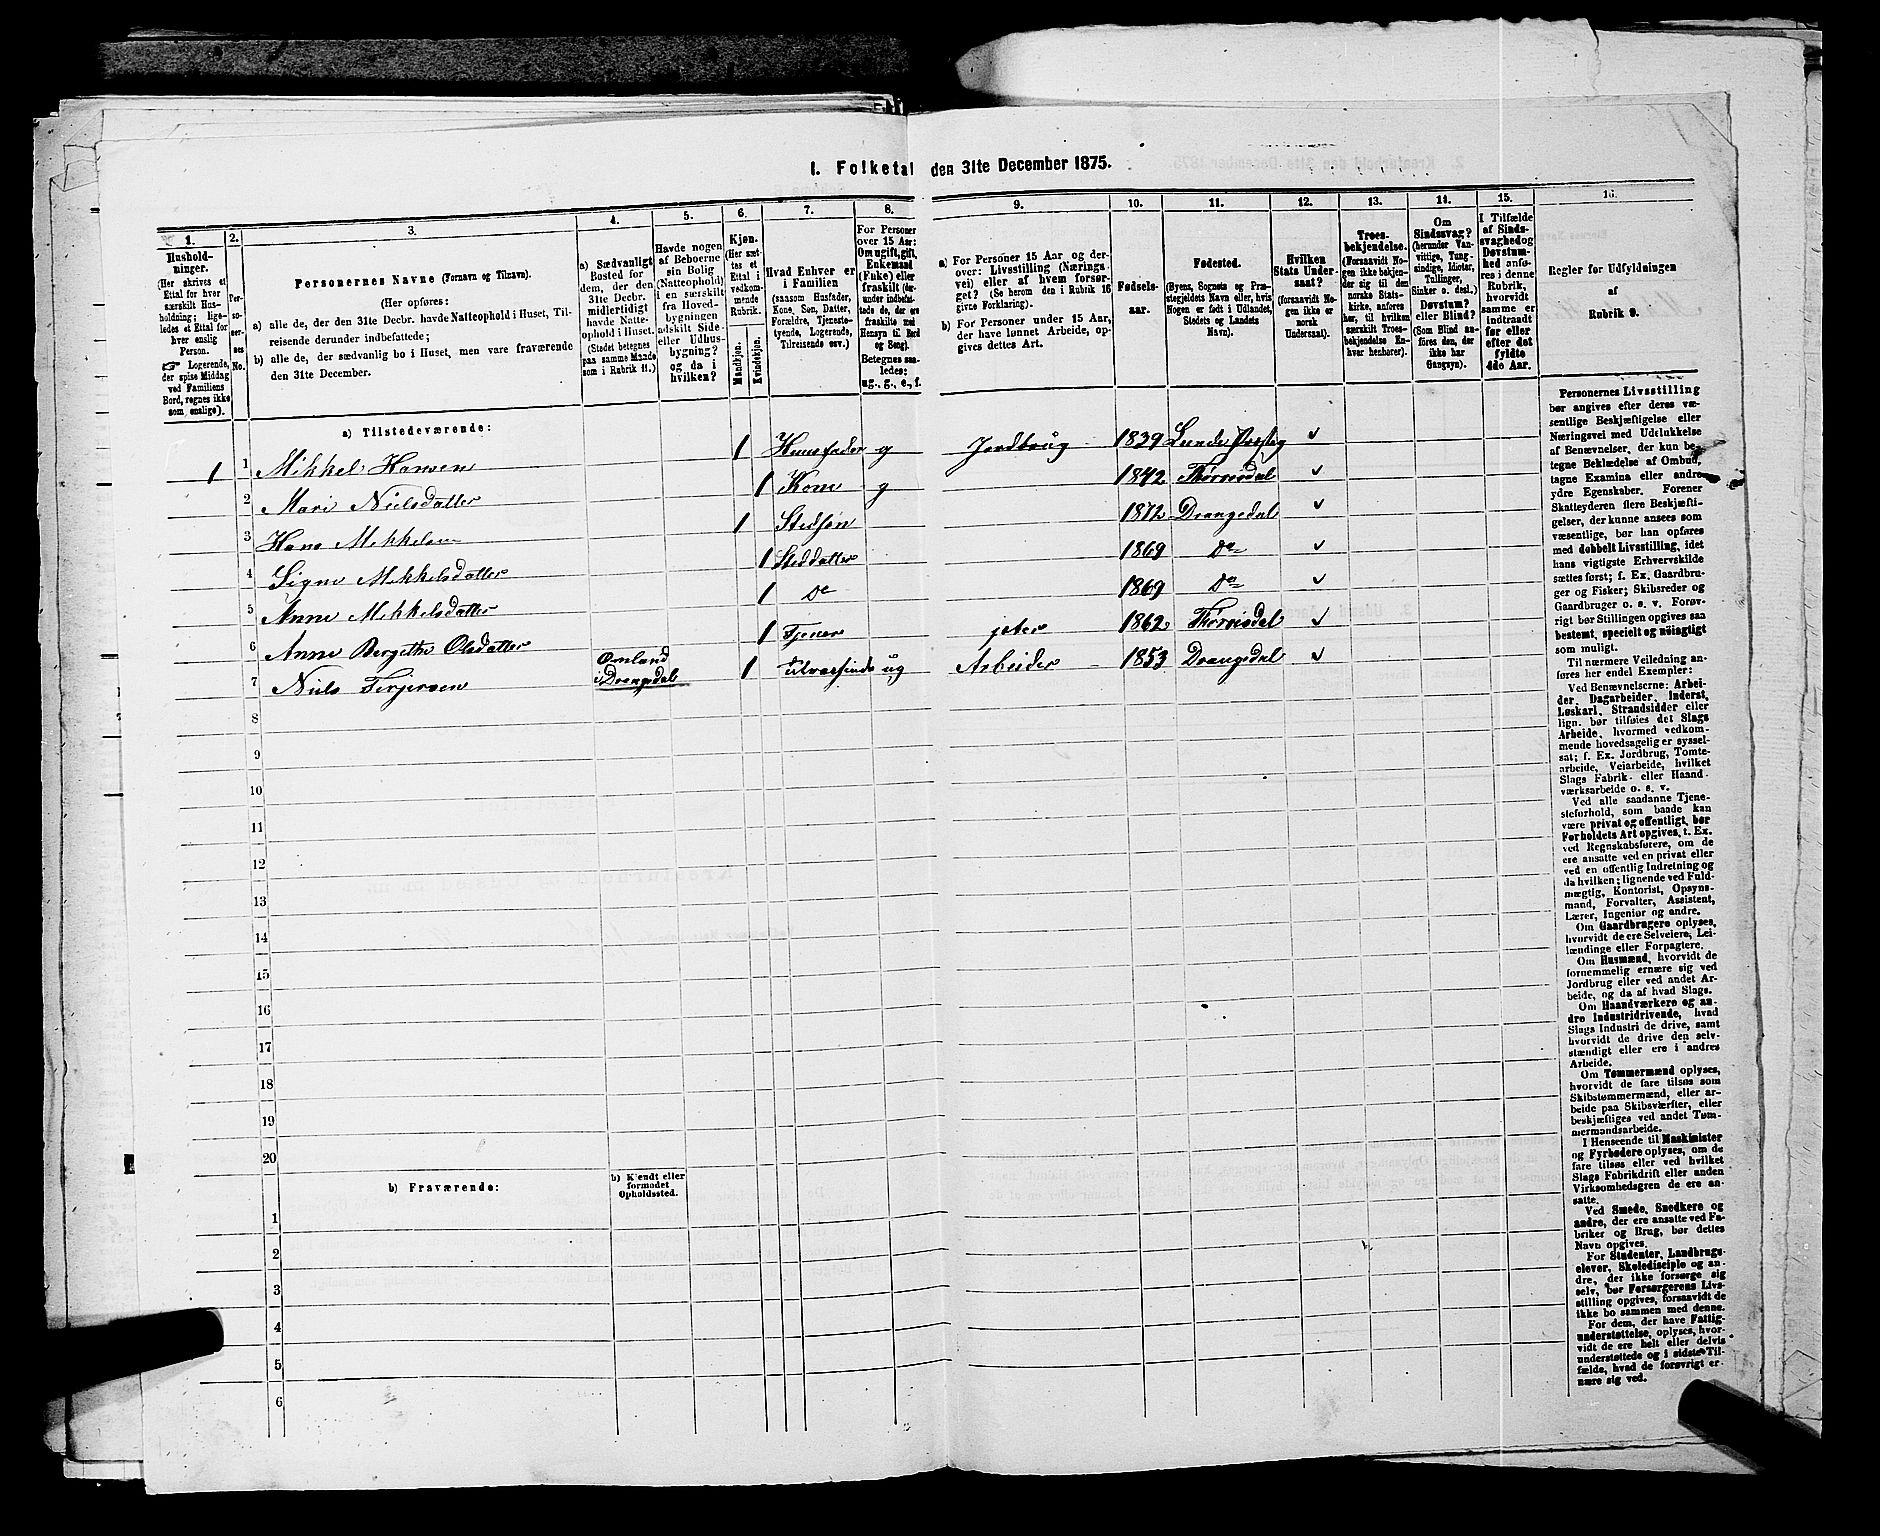 I. Folketal den 31te December 1875.
1. 2. 3. 4. 5. 6. 7. 8. 9. 10. 11. 12. 13. 14. 15. 16.
Husholdninger.
(Her skrives et
Ettal for hver
særskilt Husholdning;
ligeledes et Ettal for
hver enslig
Person.
☞ Logerende,
der spise Middag
ved Familiens
Bord, regnes ikke
som enslige).
Personernes No.
Personernes Navne (Fornavn og Tilnavn).
(Her opføres:
a) alle de, der den 31te Decbr. havde Natteophold i Huset, Tilreisende derunder indbefattede;
b) alle de, der sædvanlig bo i Huset, men vare fraværende
den 31te December.
a) Sædvanligt
Bosted for
dem, der den
31te Decbr.
midlertidigt
havde Natteophold i Huset.
(Stedet betegnes
paa samme Maade
som i Rubrik 11.)
Havde nogen
af Beboerne
sin Bolig
(Natteophold)
i en særskilt
fra Hovedbygningen
adskilt Side-
eller Udhusbygning?
og da i
hvilken?
Kjøn.
(Her sættes et
Ettal i
vedkommende
Rubrik.
Mandkjøn.
Kvindekjøn.
Hvad Enhver er
i Familien
(saasom Husfader,
Kone, Søn, Datter,
Forældre, Tjenestetyende, Logerende,
Tilreisende osv.)
For Personer
over 15 Aar:
Om ugift, gift,
Enkemand
(Enke) eller
fraskilt (derunder indbefattede de, der ere
fraskilte med
Hensyn til Bord
og Seng).
Betegnes saaledes:
ug., g., e., f.
a) For Personer 15 Aar og derover: Livsstilling (Næringsvei) eller af hvem forsørget? (Se herom den i Rubrik 16
givne Forklaring).
b) For Personer under 15 Aar,
der have lønnet Arbeide, opgives dettes Art.
Fødselsaar.
Fødested.
(Byens, Sognets og Præstegjeldets Navn eller, hvis
Nogen er født i Udlandet,
Stedets og Landets
Navn).
Hvilken
Stats Undersaat?
(forsaavidt Nogen ikke er
norsk
Undersaat).
Troesbekjendelse.
(Forsaavidt Nogen ikke bekjender sig til den
norske Statskirke, anføres
her, til hvilken
særskilt Troesbekjendelse Enhver henhører).
Om
Sindssvag?
(herunder Vanvittige, Tungsindige, Idioter,
Tullinger,
Sinker o. desl.)
Døvstum?
eller Blind?
(Som Blind anføres den, der
ikke har
Gangsyn).
I Tilfælde
af Sindssvaghed og
Døvstumhed anføres i denne
Rubrik,
hvorvidt
samme er
indtraadt
før eller
efter det
fyldte
4de Aar.
Regler for Udfyldningen
af
Rubrik 9.
a) Tilstedeværende:
1 1 Mikkel Hansen 1 Huusfader g Jordbrug 1839 Lunde Prestg ✓
2 Mari Nielsdatter 1 Kone g 1842 Tørrisdal ✓
3 Hans Mikkelsen 1 Stedsøn 1872 Drangedal ✓
4 Signe Mikkelsdatter 1 Steddatter 1869 Do ✓
5 Anne Mikkelsdatter 1 Do 1869 Do ✓
6 Anne Bergithe Olsdatter 1 Tjener jeter 1862 Tørrisdal ✓
7 Niels Terjersen Omland i Drangedal 1 ug Arbeider 1853 Drangedal ✓
8
9
10
11
12
13
14
15
16
17
18
19
20
b) Fraværende:
b) Kjendt eller
formodet
Opholdssted.
1
2
3
4
5
6
Personernes Livsstilling
bør angives efter deres væsentlige Beskjæftigelse eller
Næringsvei med Udelukkelse
af Benævnelser, der kun betegne Beklædelse af Ombud,
tagne Examina eller andre
ydre Egenskaber. Forener
Skatteyderen flere Beskjæftigelser, der kunne ansees som
væsentlige, bør han opføres
med dobbelt Livsstilling, idet
hans vigtigste Erhvervskilde
sættes først; f. Ex. Gaardbruger og Fisker; Skibsreder og
Gaardbruger o. s. v. Forøvrigt bør Stillingen opgives saa
bestemt, specielt og nøiagtigt
som muligt.
Til nærmere Veiledning anføres her endel Exempler:
Ved Benævnelserne: Arbeider, Dagarbeider, Inderst,
Løskarl, Strandsidder eller
lign. bør tilføies det Slags
Arbeide, hvormed vedkommende hovedsagelig er sysselsat; f. Ex. Jordbrug, Tomtearbeide, Veiarbeide, hvilket
Slags Fabrik- eller Haandværksarbeide o. s. v.
Ved alle saadanne Tjenesteforhold, som baade kan
være privat og offentligt, bør
Forholdets Art opgives, t. Ex.
ved Regnskabsførere, om de
ere ansatte ved en privat eller
ved en offentlig Indretning og
da hvilken; lignende ved Fuldmægtig, Kontorist, Opsynsmand, Forvalter, Assistent,
Lærer, Ingeniør og andre.
Om Gaardbrugere oplyses,
hvorvidt de ere Selveiere, Leilændinge eller Forpagtere.
Om Husmænd, hvorvidt de
fornemmelig ernære sig ved
Jordbrug eller ved andet Arbeide, og da af hvad Slags.
Om Haandværkere og andre Industridrivende, hvad
Slags Industri de drive, samt
hvorvidt de drive den selvstændigt eller ere i andres
Arbeide.
Om Tømmermænd oplyses,
hvorvidt de fare tilsøs som
Skibstømmermænd, eller arbeide paa Skibsværfter, eller
beskjæftiges ved andet Tømmermandsarbeide.
I Henseende til Maskinister
og Fyrbødere oplyses, om de
fare tilsøs eller ved hvilket
Slags Fabrikdrift eller anden
Virksomhedsgren de ere ansatte.
Ved Smede, Snedkere og
andre, der ere ansatte ved Fabriker og Brug, bør dettes
Navn opgives.
For Studenter, Landbrugselever, Skoledisciple og andre, der ikke forsørge sig
selv, bør Forsørgerens Livsstilling opgives, forsaavidt de
ikke bo sammen med denne.
For dem, der have Fattigunderstøttelse, oplyses, hvorvidt de ere helt eller delvis
understøttede og i sidste Tilfælde, hvad de forøvrigt ernære sig ved.